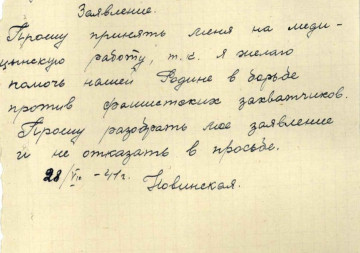 Заявление.
Прошу принять меня на меди-
цинскую работу, т.к. я желаю
помочь нашей Родине в борьбе
против фашистских захватчиков.
Прошу разобрать мое заявление
и не отказать в просьбе.
28/VI -41г. Новинская.